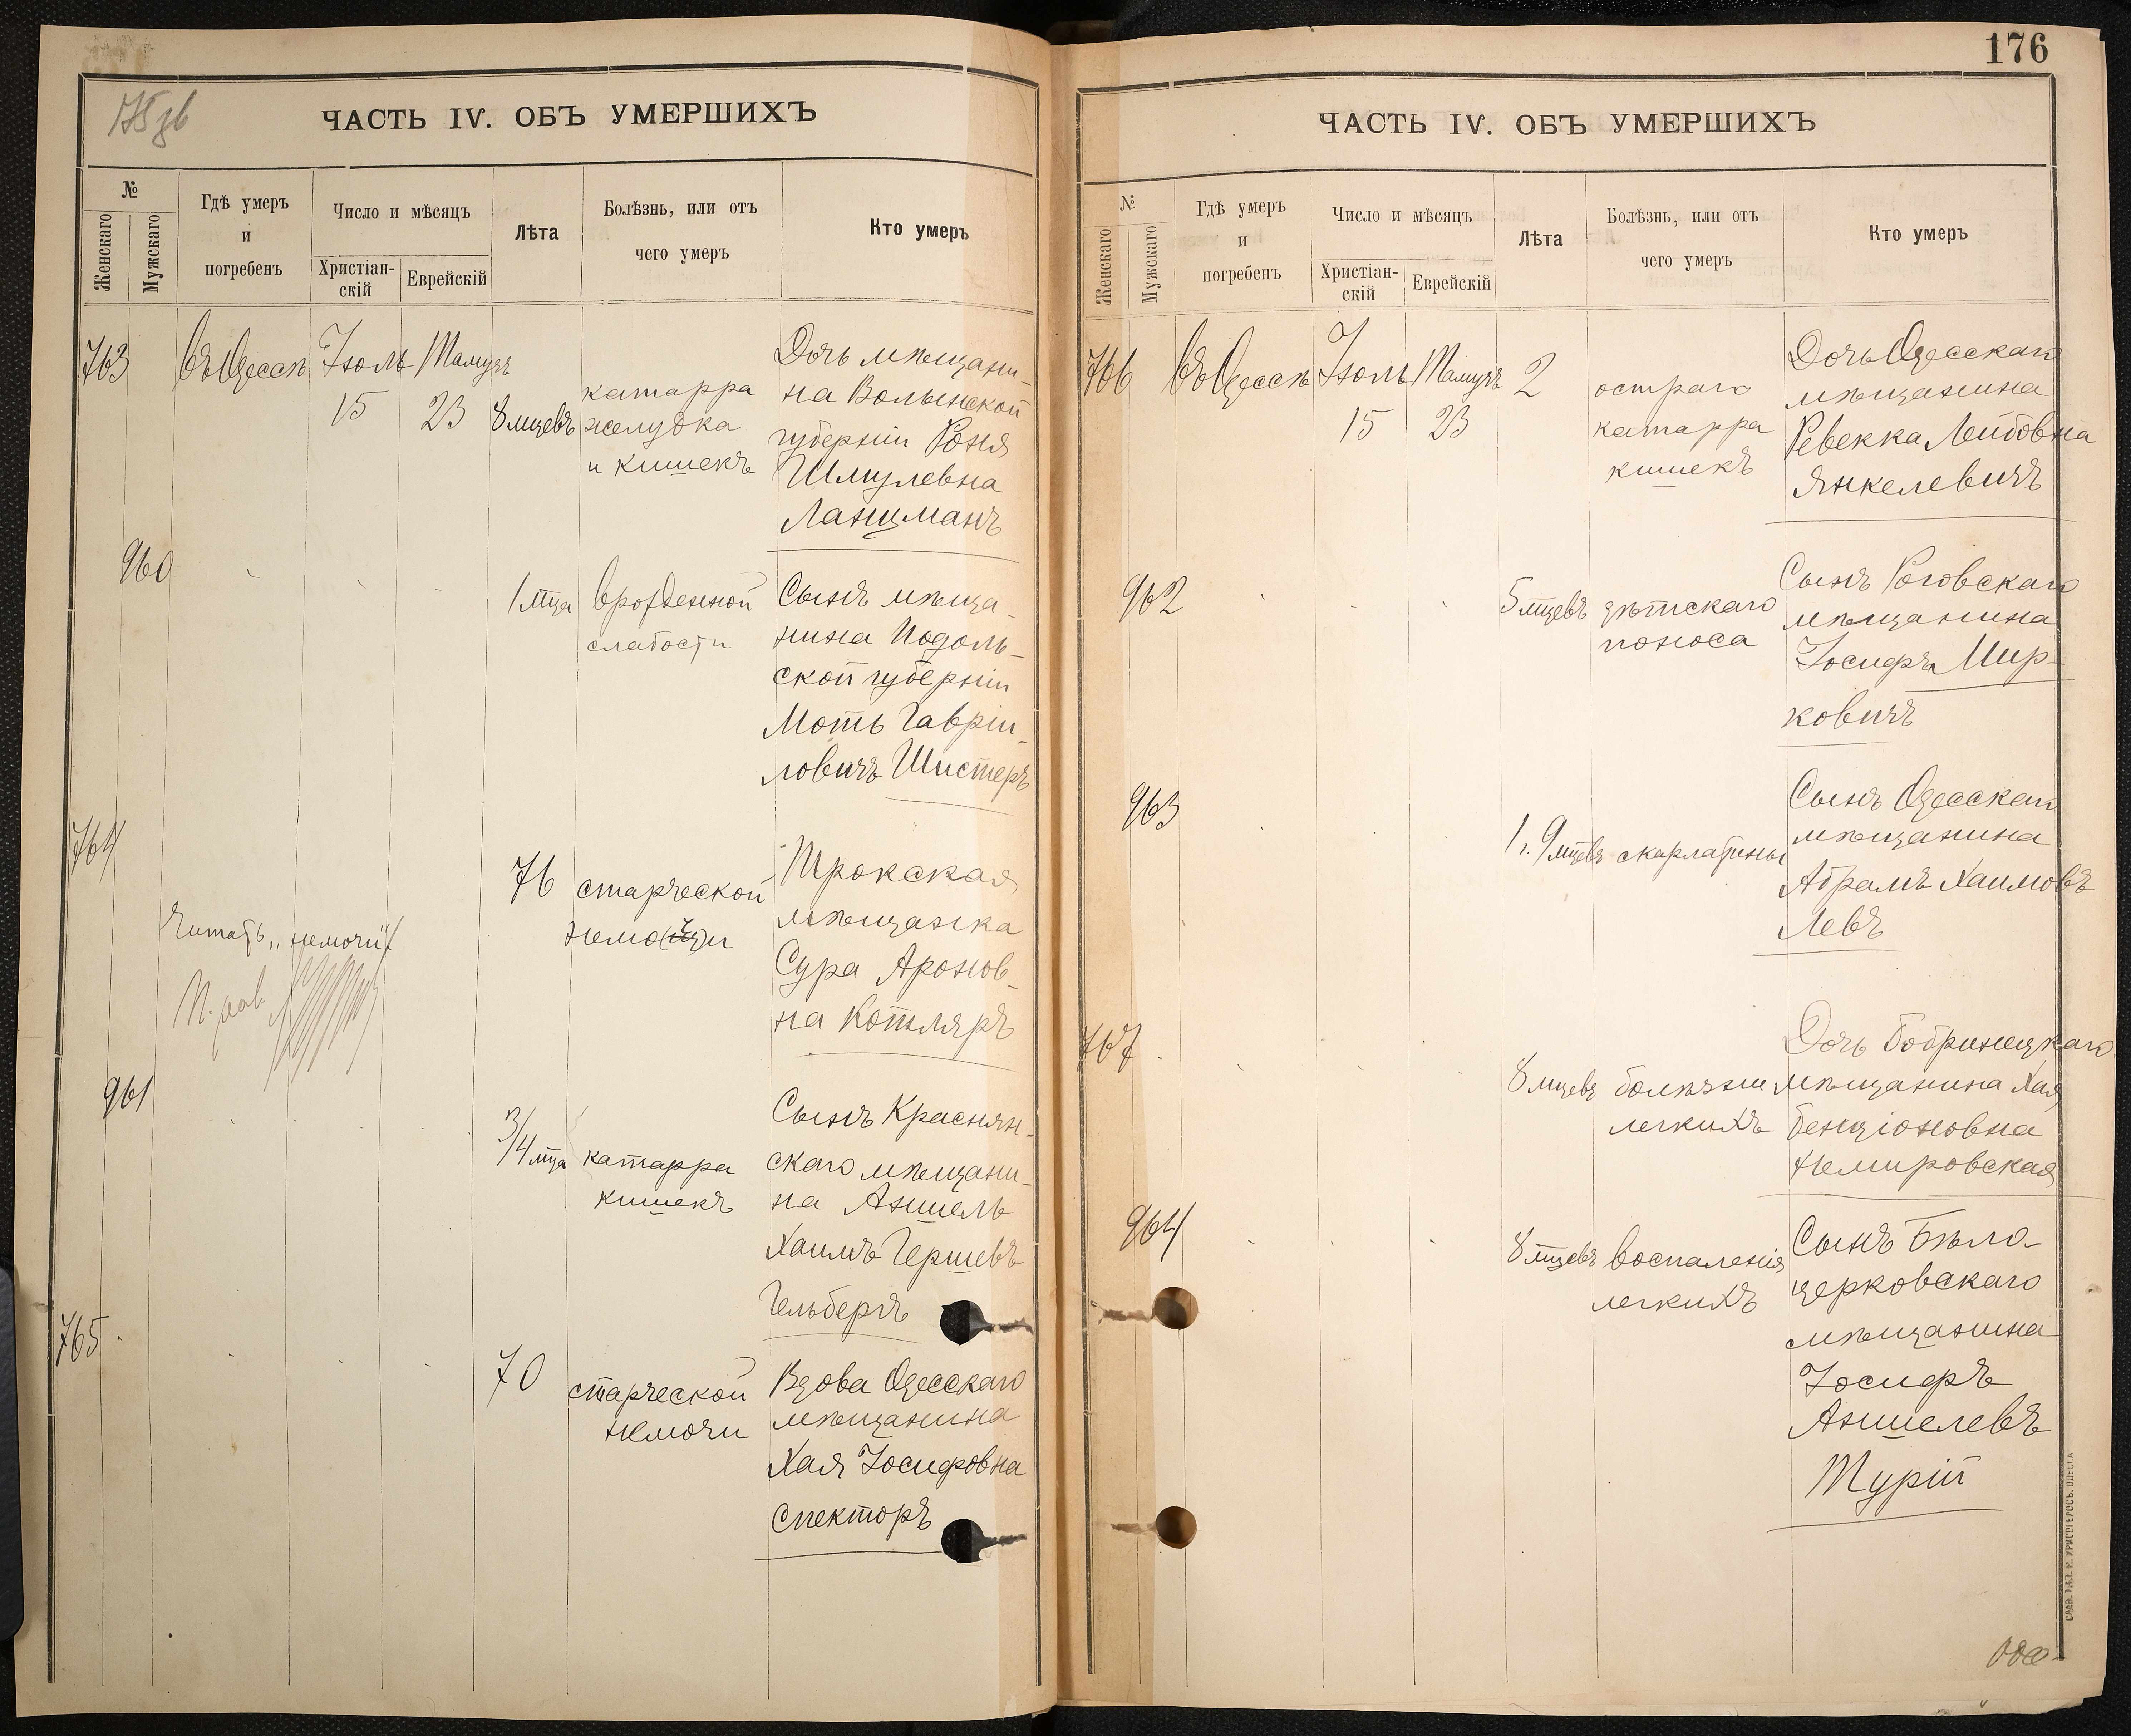 175 зв
ЧАСТЬ IV. ОБЪ УМЕРШИХЪ
№
Женскаго
Мужскаго
Гдѣ умеръ
и
погребенъ
Число и мѣсяцъ
Христіан-
скій
Еврейскій
Лѣта
Болѣзнь, или отъ
чего умеръ
Кто умеръ
763
въ Одессѣ
Іюль
15
Тамузъ
23
8 мцевъ
катарра
желудка
и кишекъ
Дочь мѣщани-
на Волынской
губерніи Роня
Шмулевна
Ланцманъ
960
1 мца
врожденной
слабости
Сынъ мѣща-
нина Подоль-
ской губерніи
Моть Гавріи-
ловичъ Шистеръ
764
76
старческой
немо(щ)и
Трокская
мѣщанка
Сура Аронов-
на Котляръ
Читать „немочи"
П. рав
961
3/4 мца
катарра
кишекъ
Сынъ Краснян-
скаго мѣщани-
на Аншель
Хаимъ Гершевъ
Гельбергъ
765
70
старческой
немочи
Вдова Одесскаго
мѣщанина
Хая Іосифовна
Спекторъ
176
ЧАСТЬ IV. ОБЪ УМЕРШИХЪ
№
Женскаго
Мужскаго
Гдѣ умеръ
и
погребенъ
Число и мѣсяцъ
Христіан-
скій
Еврейскій
Лѣта
Болѣзнь, или отъ
чего умеръ
Кто умеръ
766
въ Одессѣ
Іюль
15
Тамузъ
23
2
остраго
катарра
кишекъ
Дочь Одесскаго
мѣщанина
Ревекка Лейбовна
Янкелевичъ
962
5 мцевъ
дѣтскаго
поноса
Сынъ Роговскаго
мѣщанина
Іосифъ Мир-
ковичъ
963
1 г. 9 мцевъ
скарлатины
Сынъ Одесскаго
мѣщанина
Абрамъ Хаимовъ
Левъ
767
8 мцевъ
болѣзни
легкихъ
Дочь Бобринецкаго
мѣщанина Хая
Бенціоновна
Немировская
964
8 мцевъ
воспаленія
легкихъ
Сынъ Бѣло-
церковскаго
мѣщанина
Іосифъ
Аншелевъ
Турій